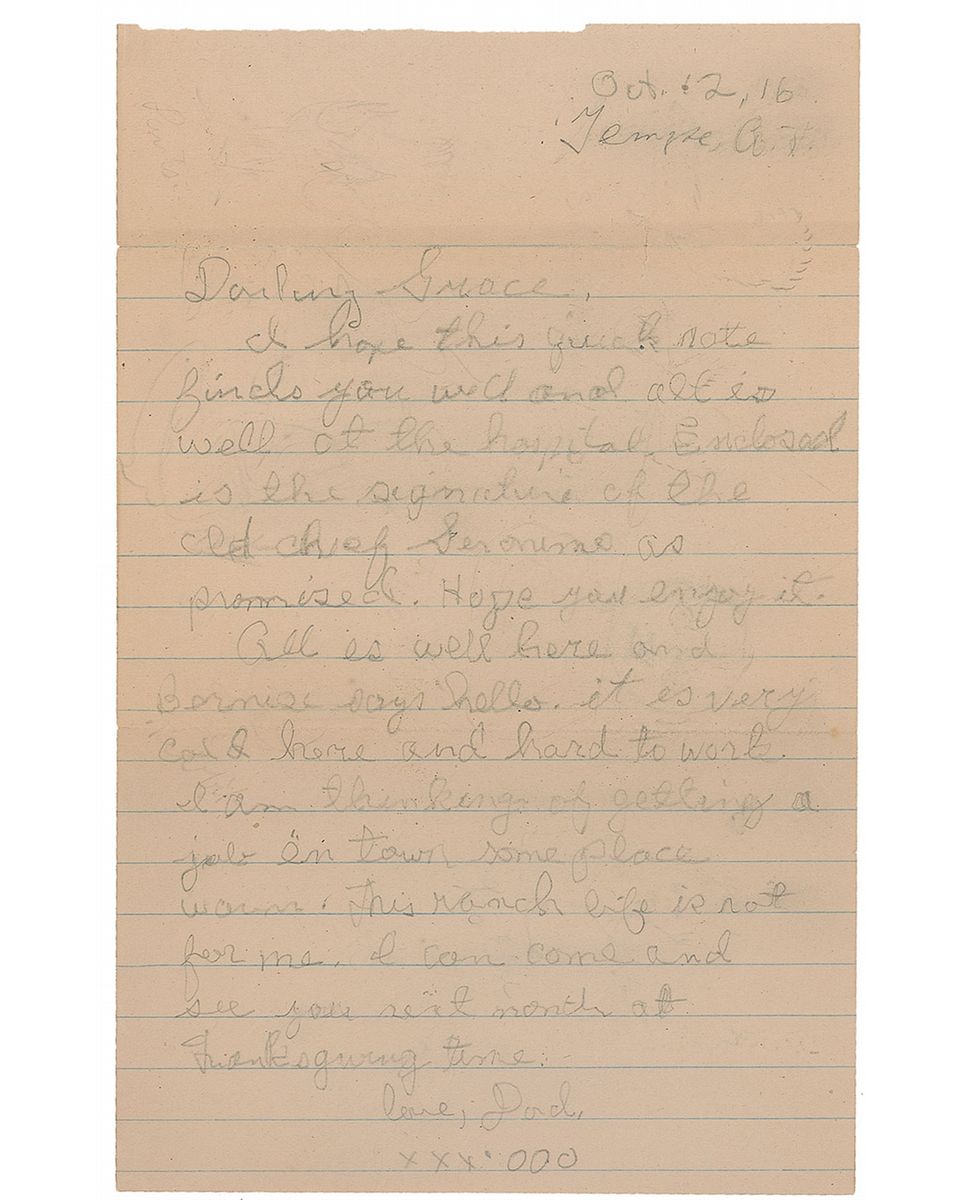 Oct. 12, 16
Tempe, A.T.
Darling Grace,
I hope this quick note
finds you well and all is
well at the hospital. Enclosed
is the signature of the
old chief Geronimo as
promised. Hope you enjoy it.
All is well here and
Bernise says hello. it is very
cold here and hard to work.
I am thinking of getting a
job in town some place
warm. This ranch life is not
for me. I can come and
see you next month at
Thanksgiving time.
love, Dad,
xxx.000